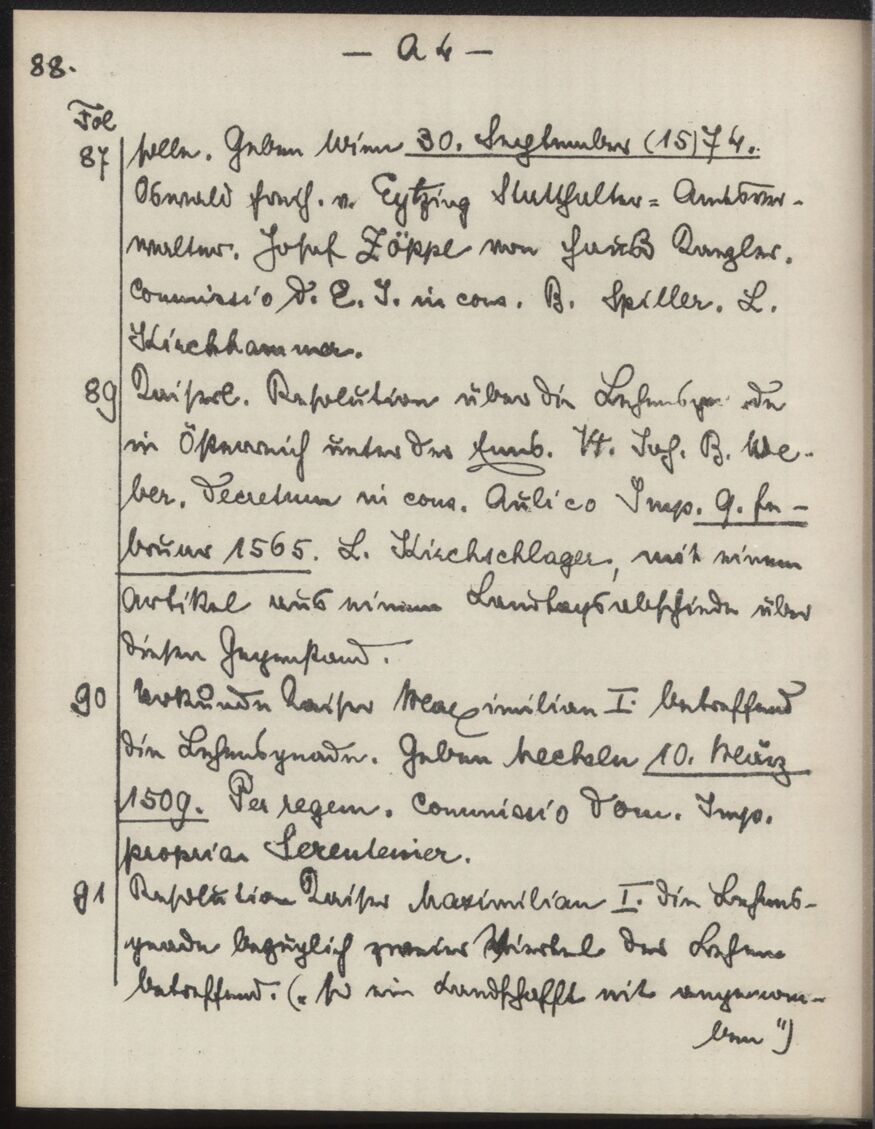 88.
— A 4 —
Fol
87 solle. Geben Wien 30. September (15)74.
Oswald Freih. v. Eytzing Statthalter= Amtsver-
walter. Josef Zöppl von Haus Kanzler.
Commissio D. E. I. in cons. B. Spiller. L.
Kirchhammer.
89 Kaiserl. Resolution über die Lehensgnade
in Österreich unter der Enns. Vt. Joh. B. We-
ber. Decretum in cons. Aulico Imp. 9. Fe-
bruar 1565. L. Kirchschlager, mit einem
Artikel aus einem Landtagsabschiede über
diesen Gegenstand.
90 Urkunde Kaiser Maximilian I. betreffend
die Lehensgnade. Geben Mecheln 10. März
1509. Per regem. Commissio Dom. Imp.
propria. Serenteiner.
91 Resolution Kaiser Maximilian I. die Lehens-
gnade bezüglich zweier Viertel der Lehen
betreffend. („so ein Landschafft nit angenom-
ben")